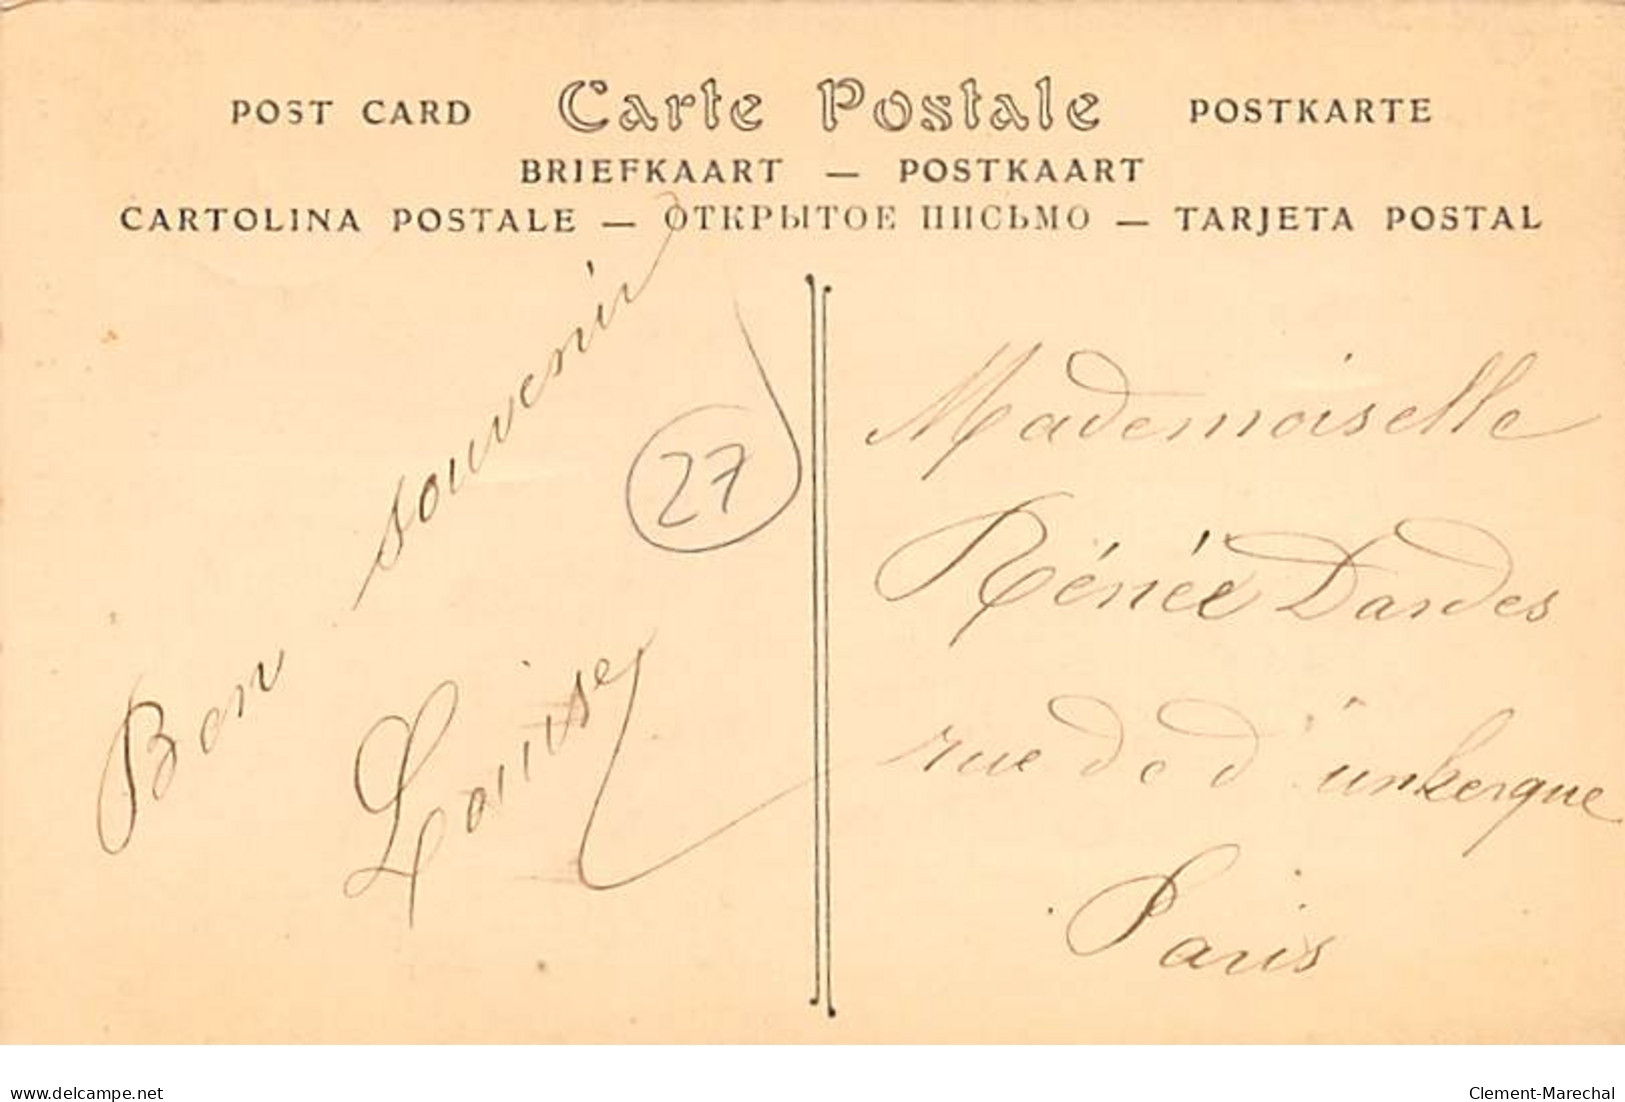 POST CARD Carte Postale POSTKARTE
BRIEFKAART — POSTKAART
CARTOLINA POSTALE — ОТКРЫТОЕ ПИСЬМО — TARJETA POSTAL
Bon souvenir
Louise
27
Mademoiselle
Rénée Dardes
rue de d'unkerque
Paris
delcampe.net
Clement-Marechal